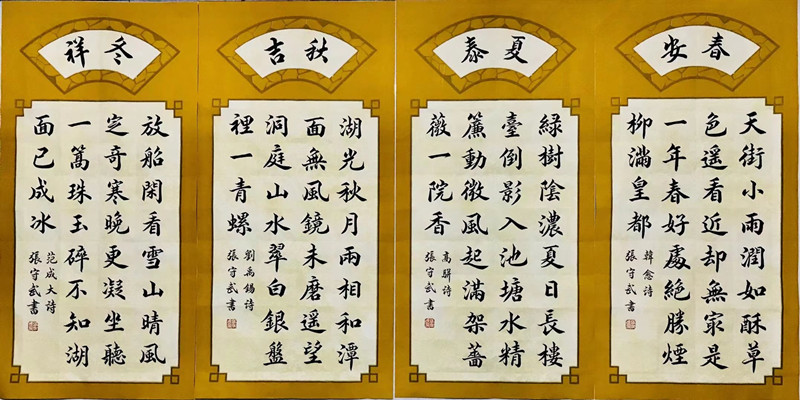 春安
天街小雨潤如酥草
色遥看近却無冣是
一年春好處絕勝煙
柳滿皇都
韓愈詩
張守武書
夏泰
綠樹陰濃夏日長樓
臺倒影入池塘水精
簾動微風起滿架薔
薇一院香
高駢詩
張守武書
秋吉
湖光秋月兩相和潭
面無風鏡未磨遥望
洞庭山水翠白銀盤
裡一青螺
劉禹錫詩
張守武書
冬祥
放船閑看雪山晴風
定奇寒晚更凝坐聽
一篙珠玉碎不知湖
面已成冰
范成大詩
張守武書